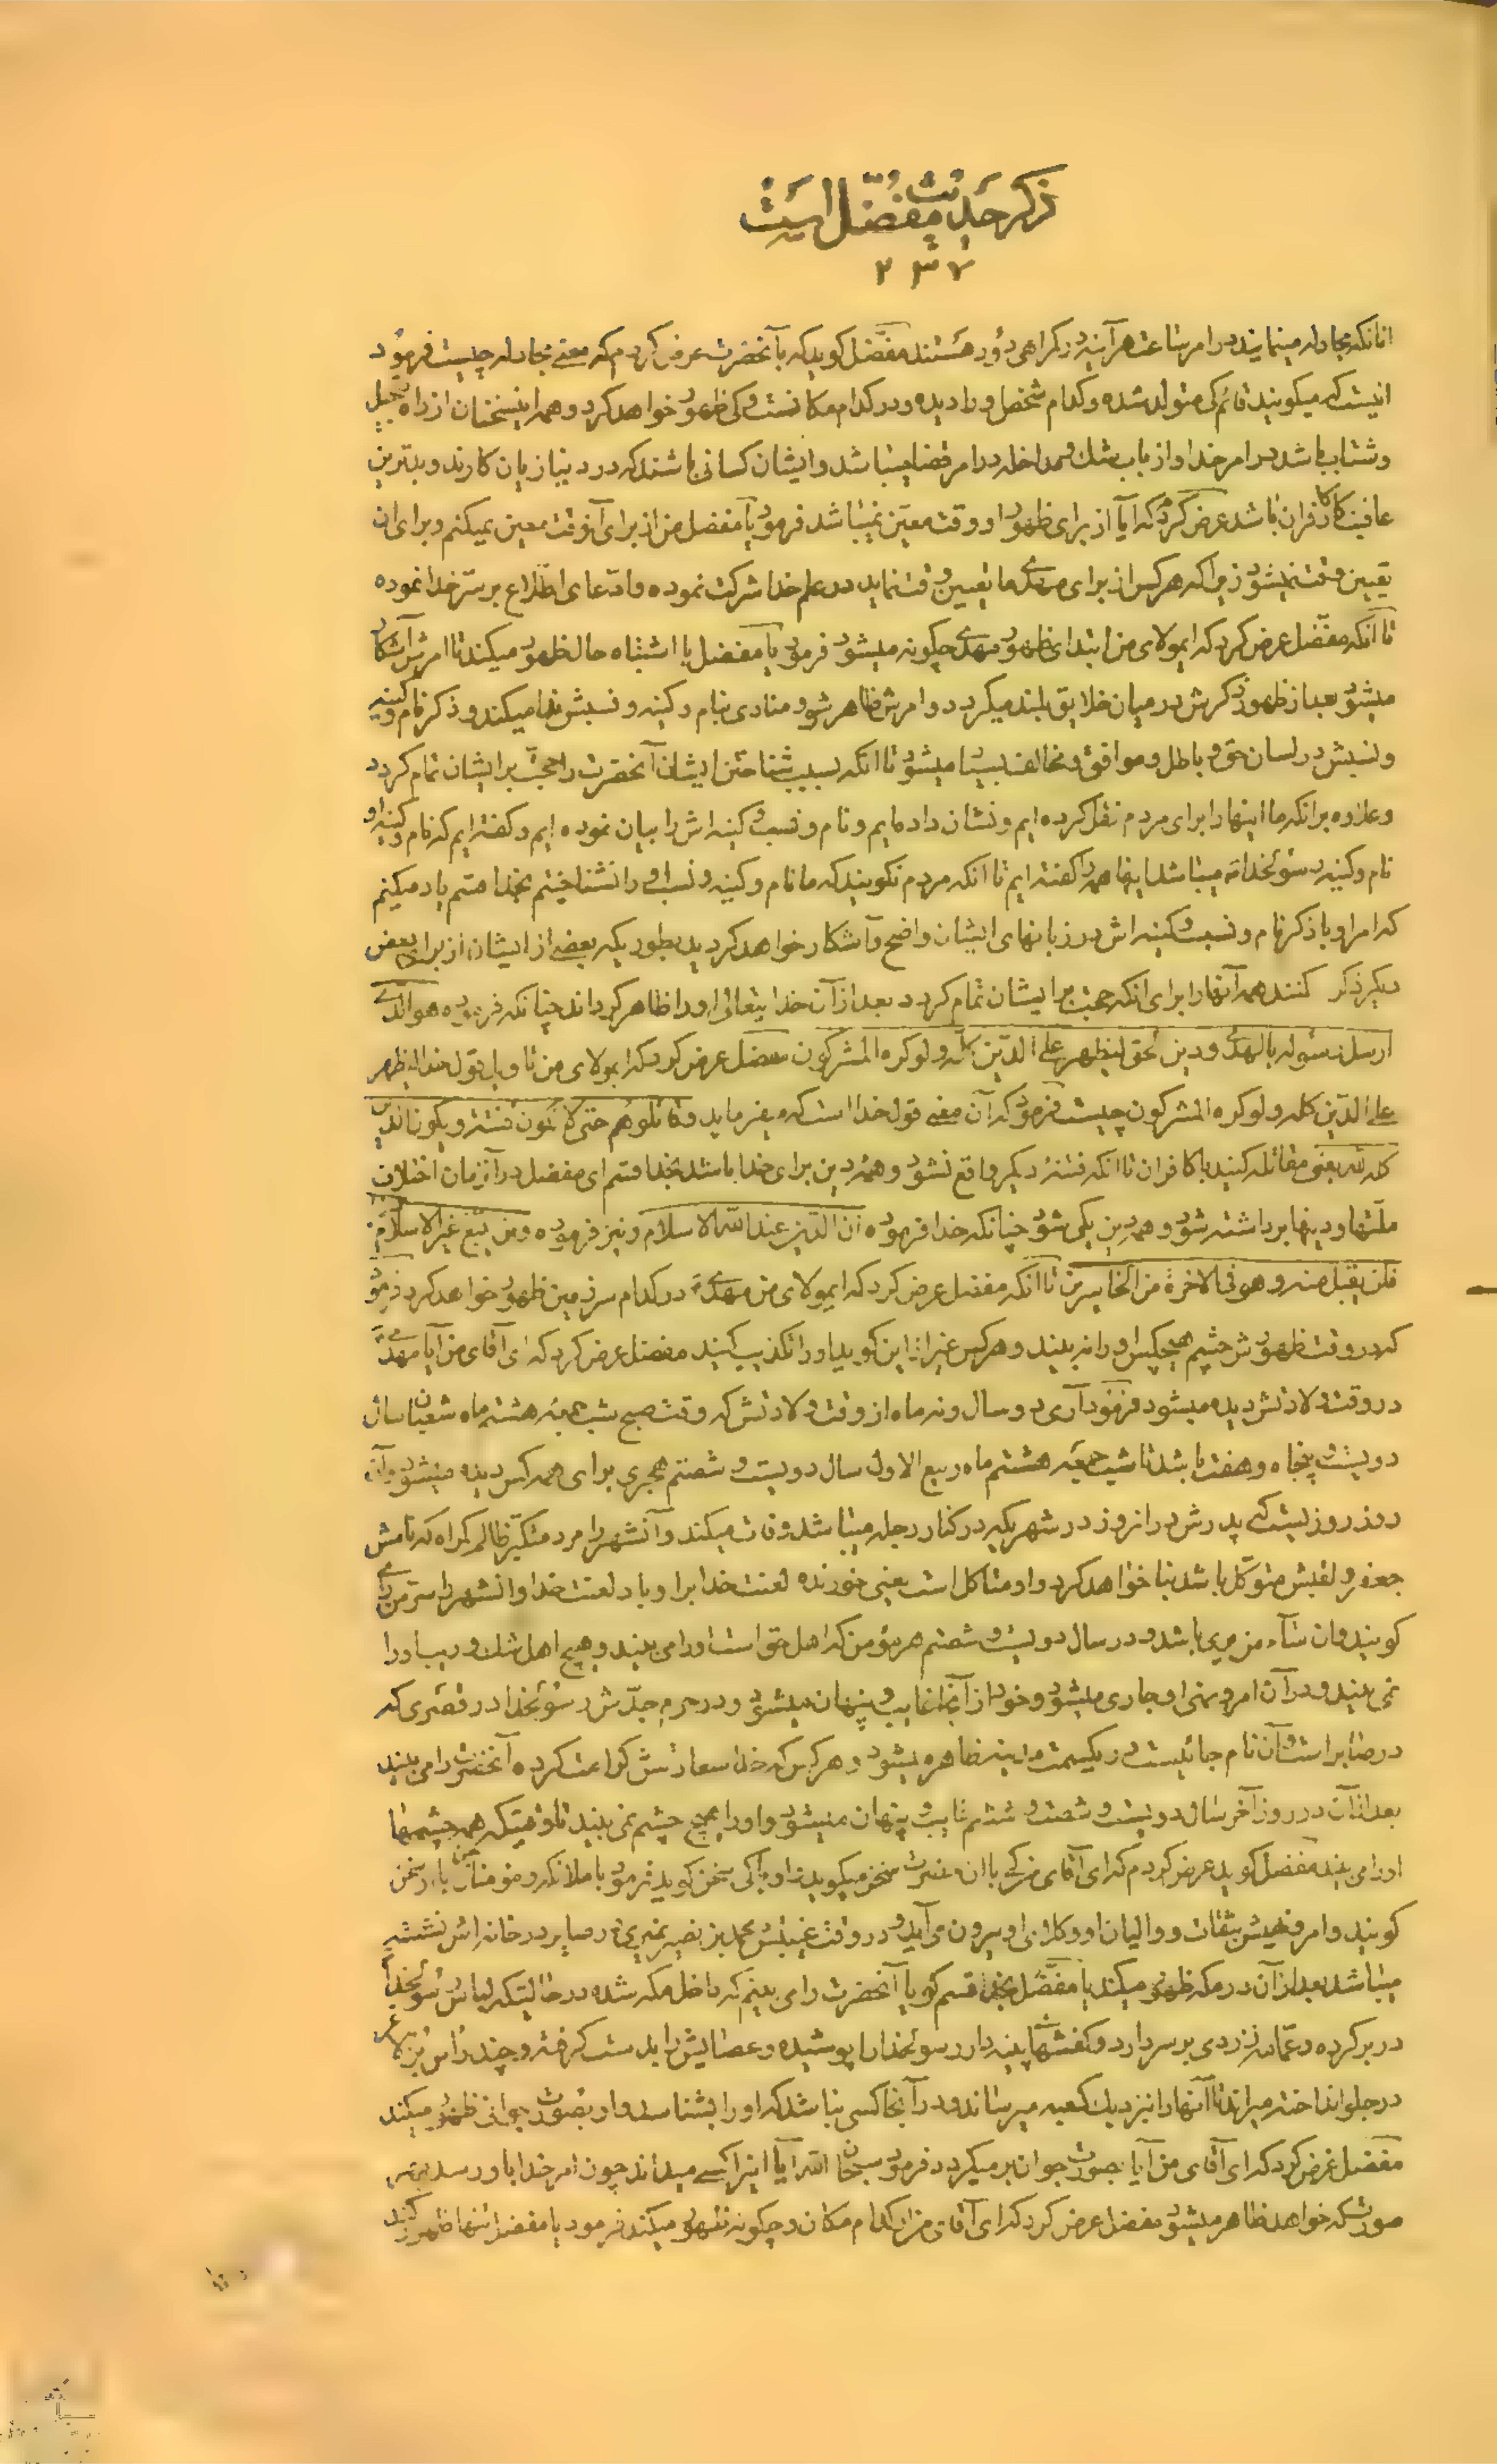 ذکر حدیث مفضّل است
۲۳۷
انانکه مجادله مینمایند در امر ساعت هر آینه در گمراهی دور هستند مفضّل گوید که بآنحضرت عرض کردم که معنے مجادله چیست فرمود
اینست که میگویند قائم کی متولد شده و کدام شخص او را دیده و در کدام مکانست و کی ظهور خواهد کرد و همه اینسخنان از راه تعجیل
و شتاب باشد در امر خدا و از باب شک و مداخله در امر قضا میباشد و ایشان کسانی باشند که در دنیا زیان کارند و بدترین
عاقبت کار کافران باشد عرض کرد که آیا از برای ظهور او وقت معیّن نمیباشد فرمود یا مفضل من از برای آن وقت معین نمیکنم و برای ان
تعیین وقت نمیشود زیراکه هر کس از برای مهدے ما تعیین وقت نماید در علم خدا شرکت نموده و ادّعای اطّلاع بر سرّ خدا نموده
تا آنکه مفضّل عرض کرد که ایمولای من ابتدای ظهور مهدے چگونه میشود فرمود یا مفضل با اشتباه حال ظهور میکند تا امرش آشکار
میشود بعد از ظهور ذکرش در میان خلایق بلند میگردد و امرش ظاهر شود و منادی بنام و کنیه و نسبش ندا میکند و ذکر نام و کنیه
و نسبش در لسان حق و باطل و موافق و مخالف بسیار میشود تا انکه بسبب شناختن ایشان آنحضرت را حجّت بر ایشان تمام گردد
و علاوه بر انکه ما اینها را برای مردم نقل کرده ایم و نشان داده ایم و نام و نسب و کنیه اش را بیان نموده ایم و گفته ایم که نام و کنیه او
نام و کنیه رسولخدا میباشد اینها همه را گفته ایم تا انکه مردم نگویند که ما نام و کنیه و نسب او را نشناختیم بخدا قسم یاد میکنم
که امر او با ذکر نام و نسب و کنیه اش در زبانهای ایشان واضح و آشکار خواهد گردید بطوریکه بعضے از ایشان از برای بعض
دیگر ذکر کنند همه آنها را برای انکه حجت بر ایشان تمام گردد بعد از آن خدایتعالی او را ظاهر گرداند چنانکه فرموده هو الّذے
ارسل رسوله بالهدی و دین الحق لیظهره علی الدّین کلّه ولو کره المشرکون مفضل عرض کرد که ایمولای من تاویل قول خدا لیظهره
علے الدّین کله ولو کره المشرکون چیست فرمود که آن معنے قول خدا است که میفرماید و قاتلوهم حتی لا تکون فتنة و یکون الدین
کله لله یعنی مقاتله کنید با کافران تا انکه فتنۀ دیگر واقع نشود و همۀ دین برای خدا باشد بخدا قسم ای مفضل در آنزمان اختلاف
ملّتها و دینها برداشته شود و همه دین یکی شود چنانکه خدا فرموده ان الدّین عند الله الاسلام و نیز فرموده و من یبتغ غیر الاسلام دینا
فلن یقبل منه و هو فی الاخرة من الخاسرین تا انکه مفضل عرض کرد که ایمولای من مهدے در کدام سرزمین ظهور خواهد کرد فرمود
که در وقت ظهورش چشم هیچکس او را نه بیند و هر کس غیر از این گوید او را تکذیب کنید مفضل عرض کرد که ای آقای من آیا مهدے
در وقت ولادتش دیده میشود فرمود آری دو سال و نه ماه از وقت ولادتش که وقت صبح شب جمعه هشتم ماه شعبان سال
دویست و پنجاه و هفت باشد تا شب جمعه هشتم ماه ربیع الاول سال دویست و شصتم هجری برای همه کس دیده میشود و آن
روز روزیست که پدرش در انروز در شهریکه در کنار دجله میباشد وفات میکند و آنشهر را مرد متکبّر ظالم گمراه که نامش
جعفر و لقبش متوکّل باشد بنا خواهد کرد و او متاکل است یعنی خورنده لعنت خدا بر او باد لعنت خدا و انشهر را سرّ من رأے
گویند و ان ساء من یری باشد و در سال دویست و شصتم هر مؤمن که اهل حق است او را می بیند و هیچ اهل شک و ریب او را
نمی بیند و در آن امر و نهی او جاری میشود و خود از آنجا غایب و پنهان میشود و در حرم جدّش رسولخدا در قصری که
در صابر است و آن نام جائیست در یکسمت مدینه ظاهر میشود و هر کس که خدا سعادتش کرامت کرده آنحضرت را می بیند
بعد از آن در روز آخر سال دویست و شصت و ششم غایب و پنهان میشود و او را هیچ چشم نمی بیند تا وقتیکه همه چشمها
او را می بینند مفضل گوید عرض کردم که ای آقای من کے با انحضرت سخن میگوید و او با کی سخن گوید فرمود با ملائکه و مؤمنان جن با او سخن
گویند و امر و نهیش بثقات و والیان او و وکلای او بیرون می آید و در وقت غیبتش محمد بن نصیر نمیری در صابر در خانه اش نشسته
میباشد بعد از آن در مکه ظهور میکند یا مفضّل بخدا قسم گویا آنحضرت را می بینم که داخل مکه شده در حالتیکه لباس رسولخدا
در بر کرده و عمّامه زردی بر سر دارد و کفشهای پینه دار رسولخدا را پوشیده و عصایش را بدست گرفته و چند راس بز لاغر
در جلو انداخته میراند تا آنها را نزدیک کعبه میرساند و در آنجا کسی نباشد که او را بشناسد و او بصورت جوانی ظهور میکند
مفضل عرض کرد که ای آقای من آیا بصورت جوان بر میگردد فرمود سبحان الله آیا اینرا کسے میداند چون امر خدا باو رسد بهر
صورتیکه خواهد ظاهر میشود مفضل عرض کرد که ای آقای من از کدام مکان و چگونه ظهور میکند فرمود یا مفضل تنها ظهور کند